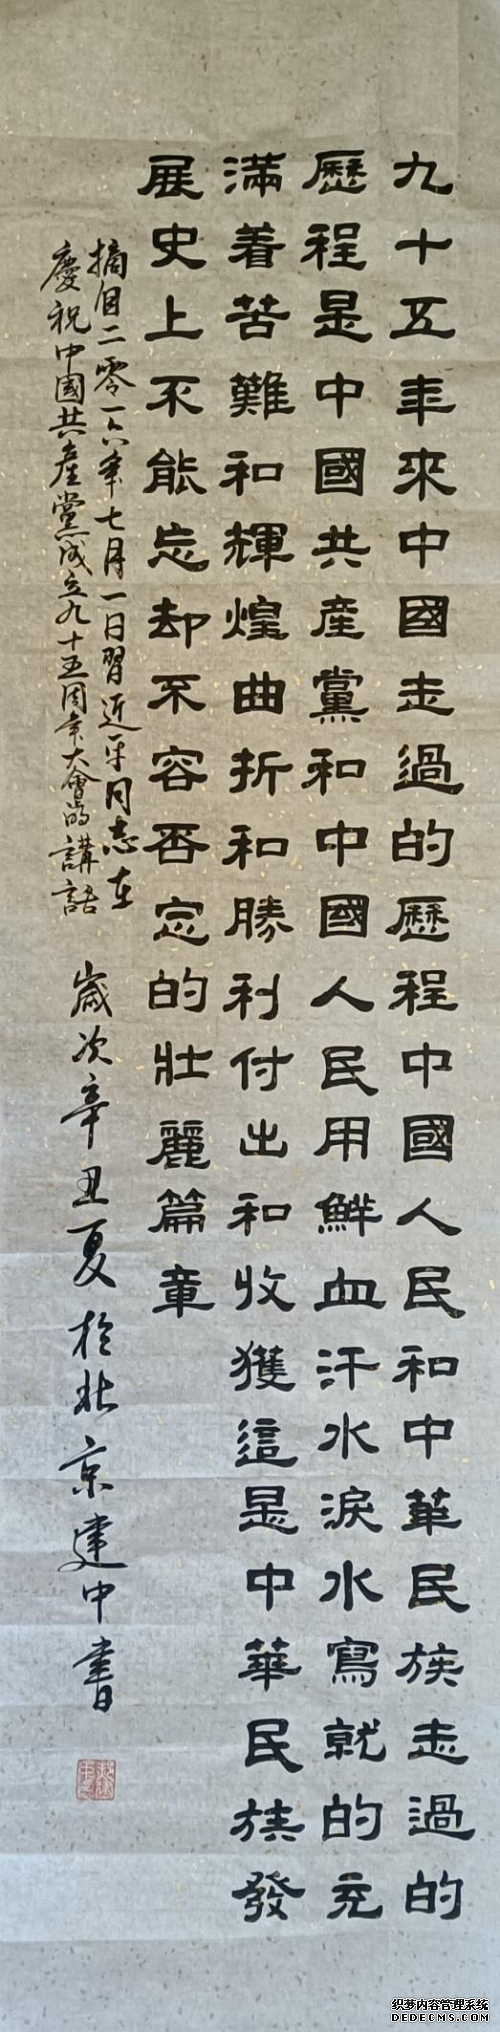 九十五年來中國走過的歷程中國人民和中華民族走過的
歷程是中國共産黨和中國人民用鮮血汗水淚水寫就的充
滿着苦難和輝煌曲折和勝利付出和收獲這是中華民族發
展史上不能忘却不容否定的壯麗篇章
摘自二零一六年七月一日習近平同志在
慶祝中國共産黨成立九十五周年大會的講話
歲次辛丑夏於北京建中書
织梦内容管理系统
DEDECMS.COM